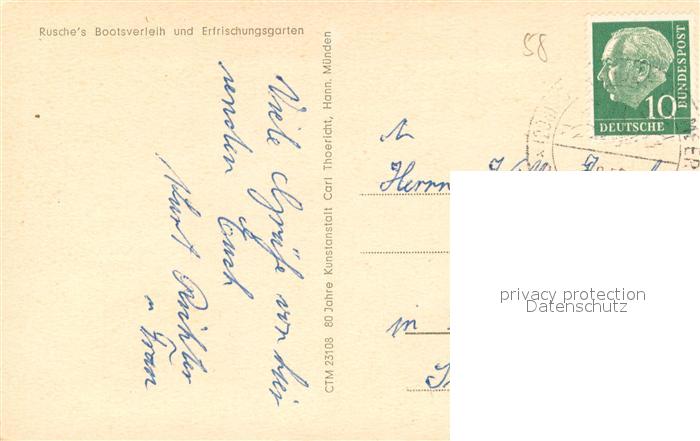 Rusche's Bootsverleih und Erfrischungsgarten
58
10
DEUTSCHE
BUNDESPOST
Viele Grüße von hier
senden Euch
Kurt Richter
u Frau
CTM 23108 80 Jahre Kunstanstalt Carl Thoericht, Hann. Münden
Herrn
in
privacy protection
Datenschutz